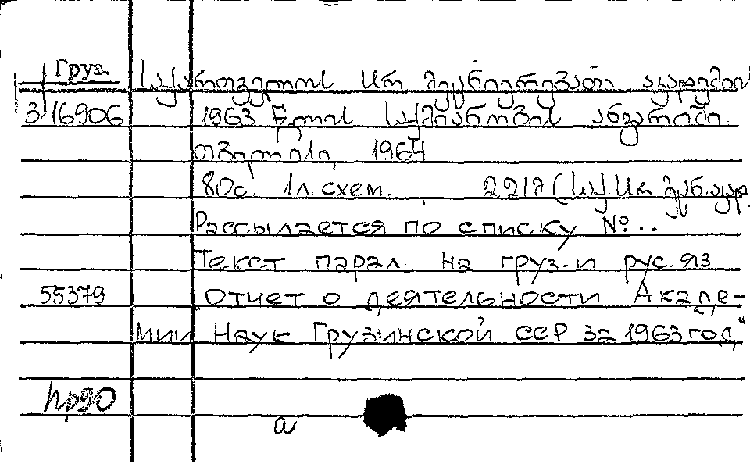 Груз. საქართველოს სსრ მეცნიერებათა აკადემიის
3 16906 1963 წლის საქმიანობის ანგარიში.
თბილისი, 1964
80с. 1л. схем. 22 (საქ. სსრ
Рассылается по списку №..
Текст парал. на груз. и рус. яз.
55379 Отчет о деятельности Акаде-
мии Наук Грузинской ССР за 1963 год"
а